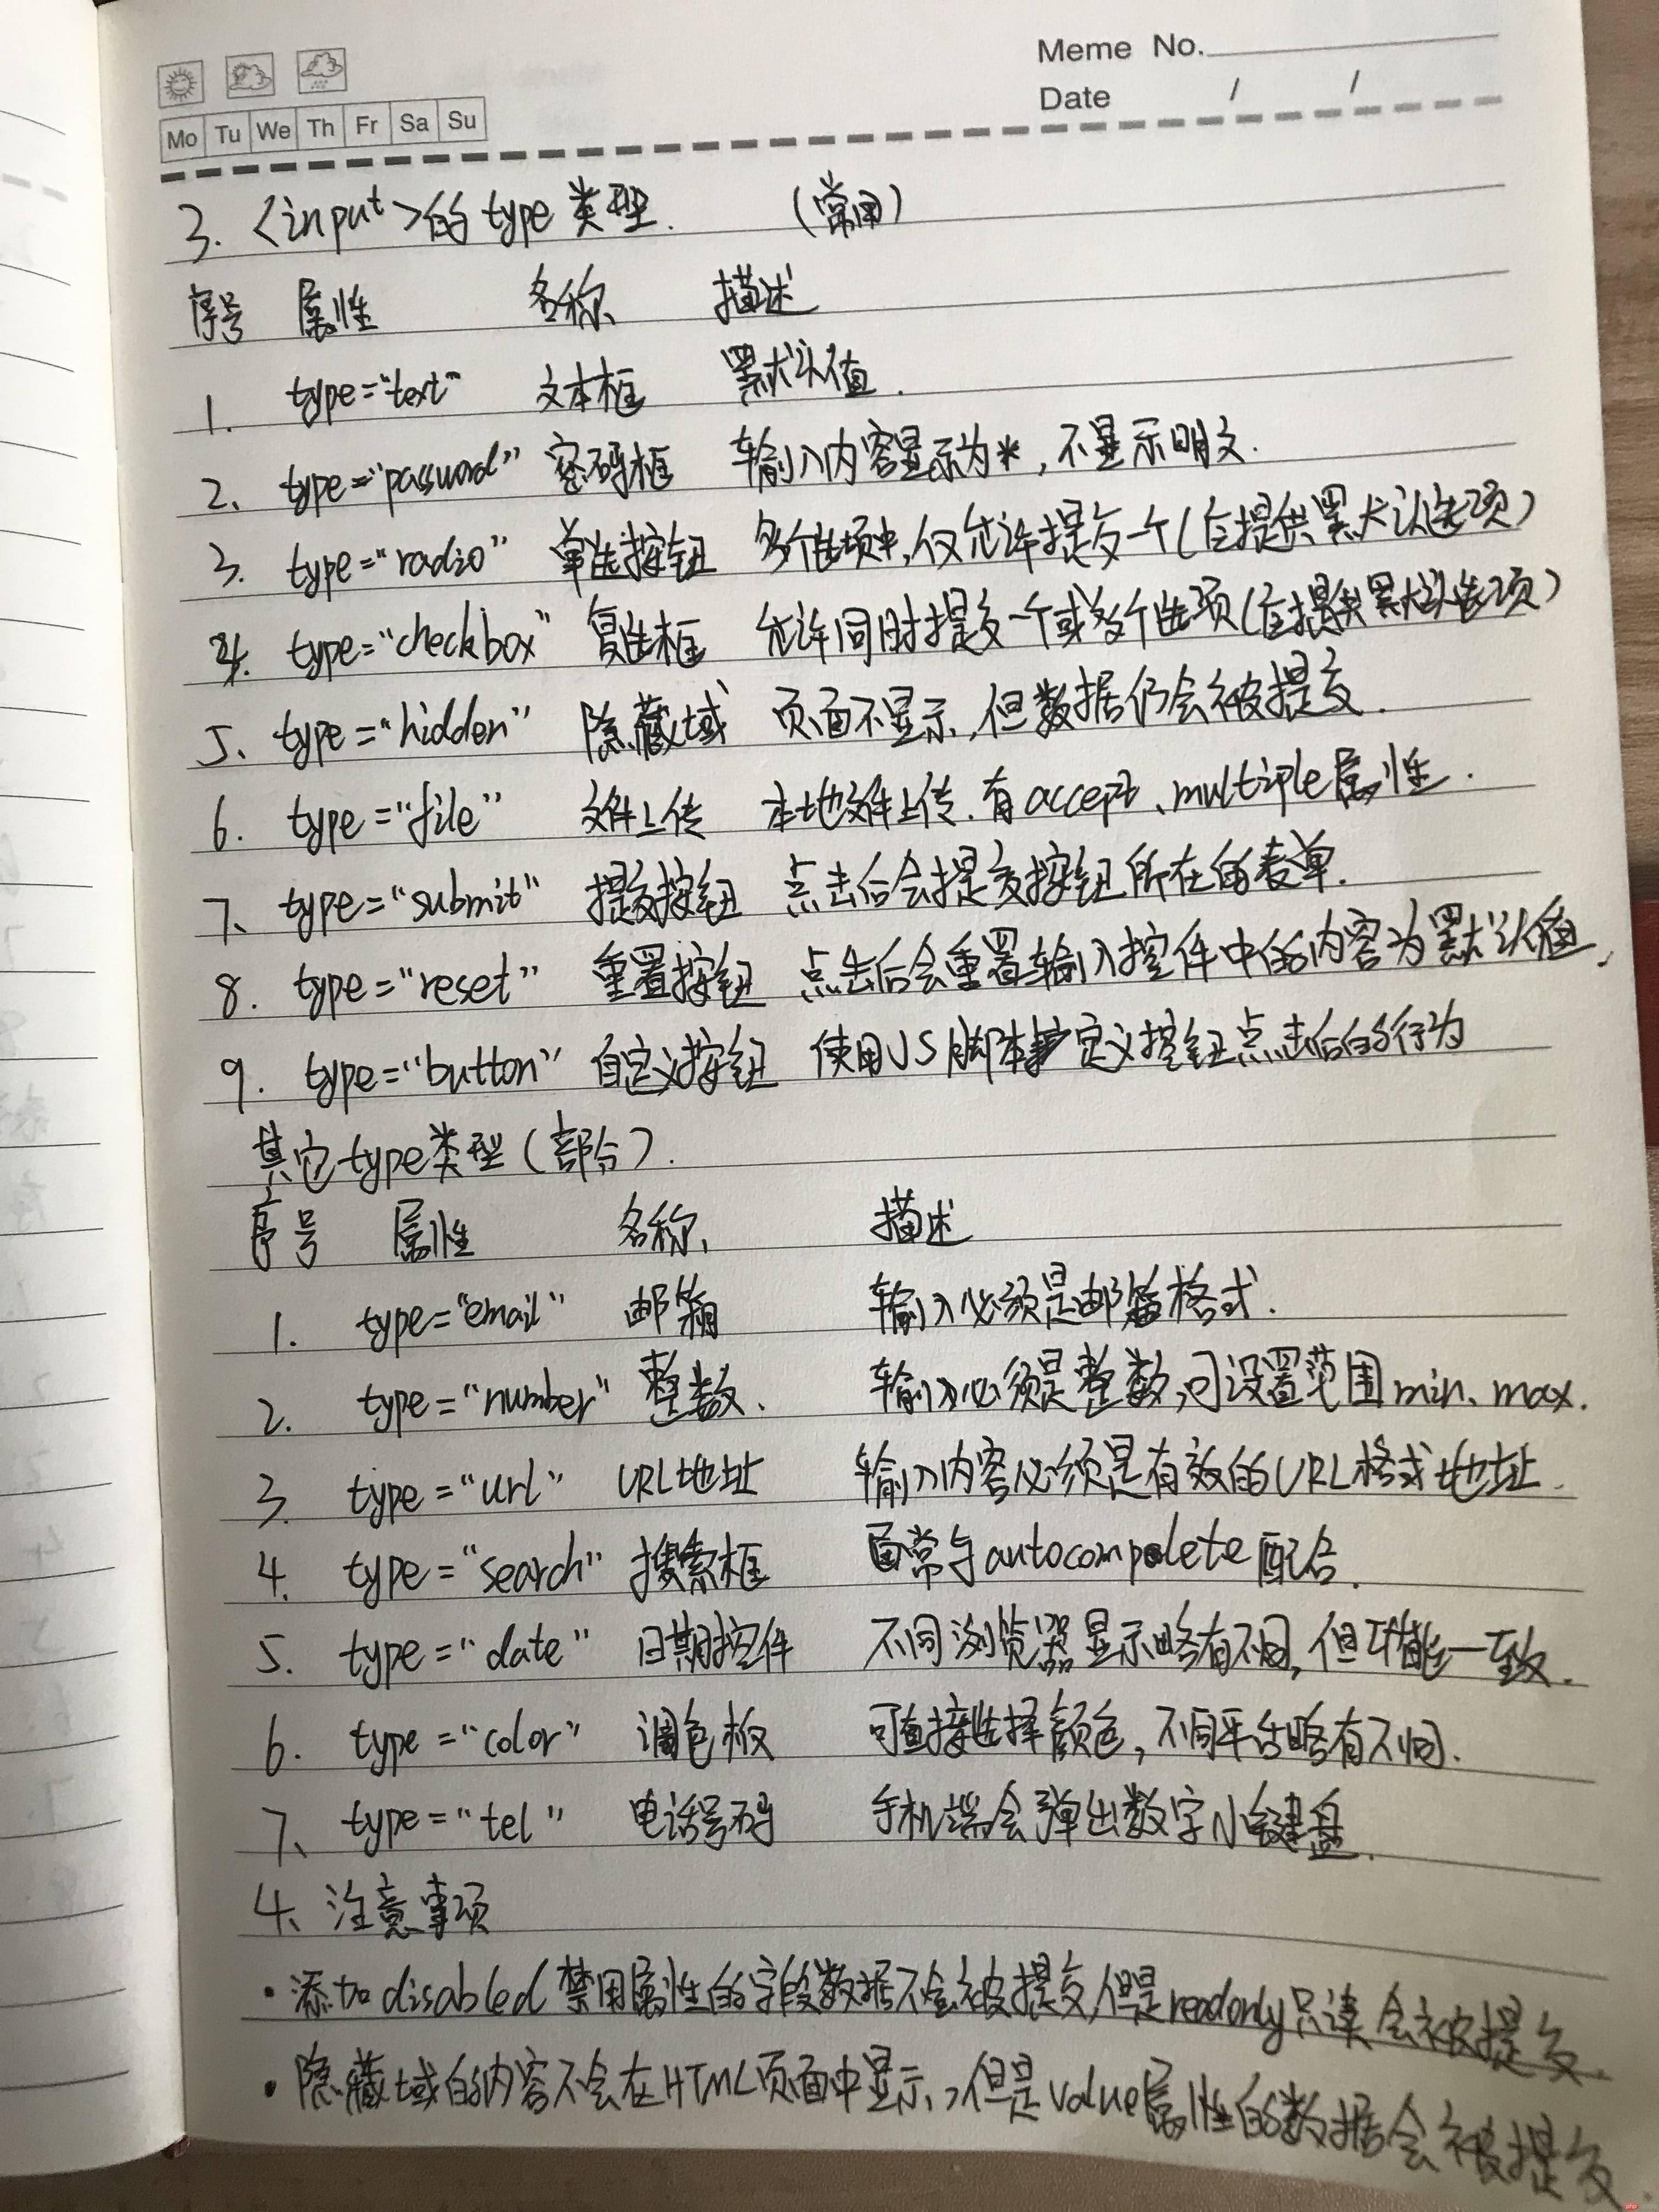 Meme No.
Date / /
Mo Tu We Th Fr Sa Su
3. <input>的type类型. (常用)
序号 属性 名称 描述
1. type="text" 文本框 默认值.
2、type="password" 密码框 输入内容显示为*,不显示明文.
3. type="radio" 单选按钮 多个选项中,仅允许提交一个(应提供默认选项)
4. type="checkbox" 复选框 允许同时提交一个或多个选项(应提供默认选项)
5、type="hidden" 隐藏域 页面不显示,但数据仍会被提交.
6. type="file" 文件上传 本地文件上传.有accept、multiple属性.
7、type="submit" 提交按钮 点击后会提交按钮所在的表单.
8. type="reset" 重置按钮 点击后会重置输入控件中的内容为默认值.
9. type="button" 自定义按钮 使用JS脚本定义按钮点击后的行为
其它type类型(部分).
序号 属性 名称 描述
1. type="email" 邮箱 输入必须是邮箱格式.
2. type="number" 整数. 输入必须是整数,可设置范围min、max.
3. type="url" URL地址 输入内容必须是有效的URL格式地址.
4. type="search" 搜索框 通常与autocompolete配合.
5. type="date" 日期控件 不同浏览器显示略有不同,但功能一致.
6. type="color" 调色板 可直接选择颜色,不同平台略有不同.
7、type="tel" 电话号码 手机端会弹出数字小键盘.
4、注意事项
·添加disabled禁用属性的字段数据不会被提交,但是readonly只读会被提交.
·隐藏域的内容不会在HTML页面中显示,但是value属性的数据会被提交.